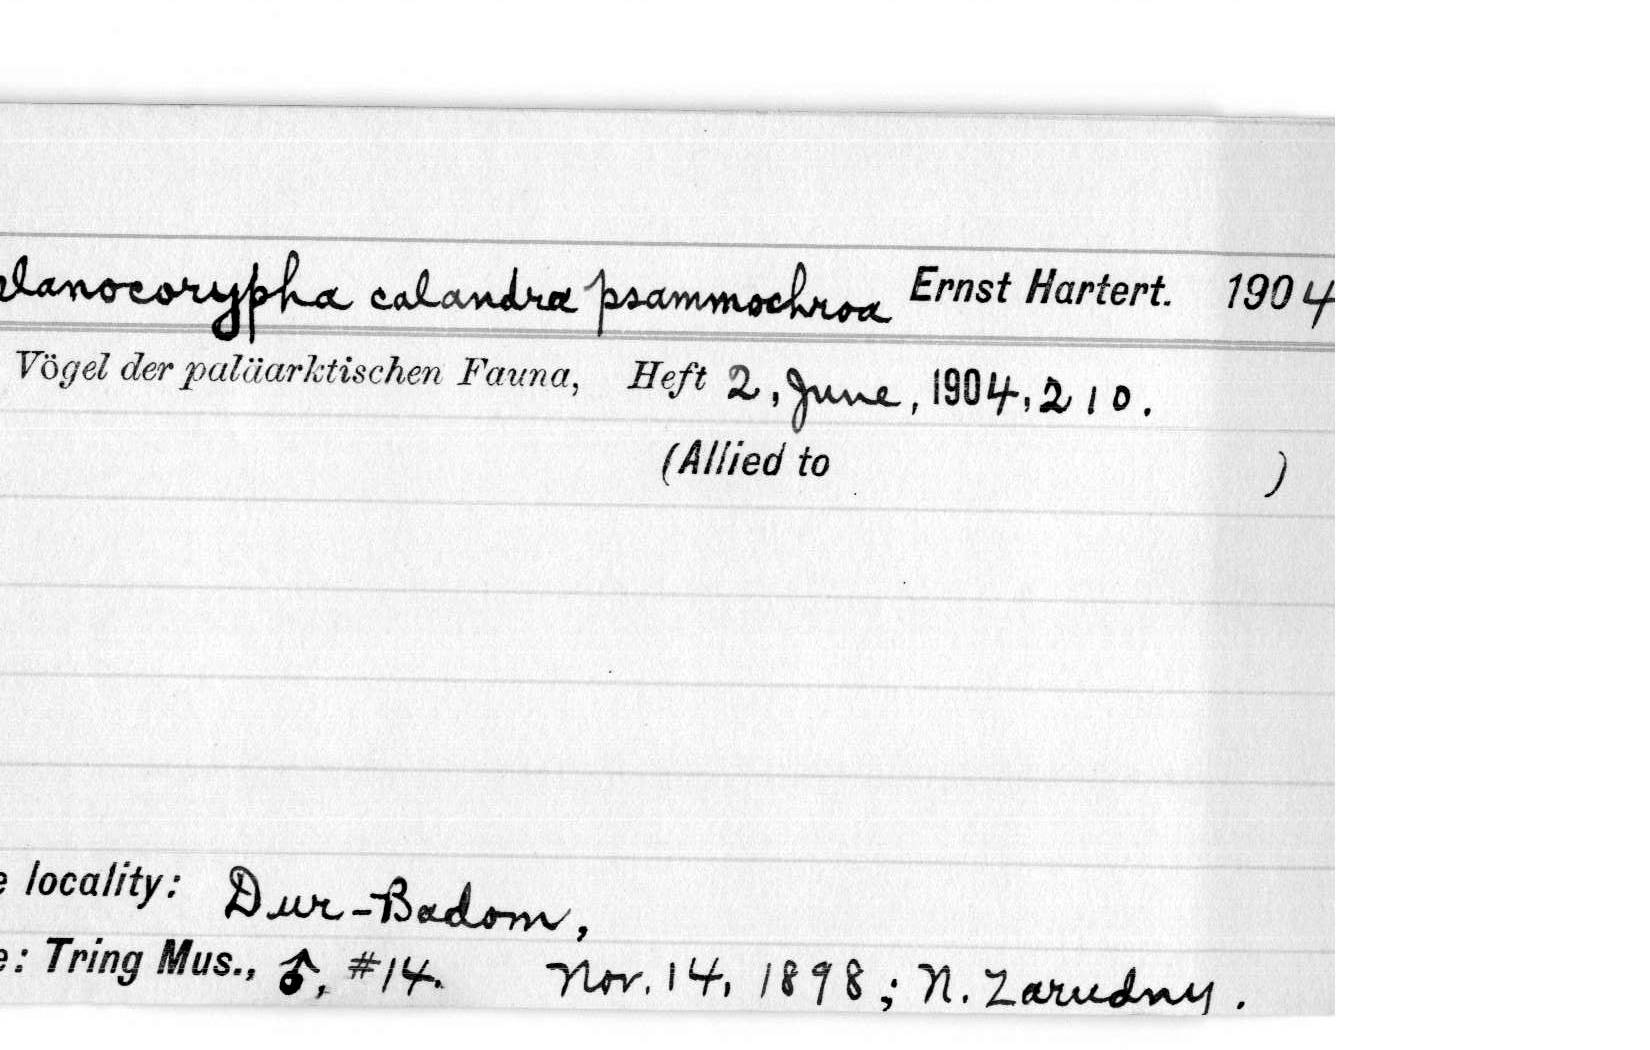 elanocorypha calandra psammochroa Ernst Hartert. 1904
Vögel der paläarktischen Fauna, Heft 2, June, 1904, 210.
(Allied to )
e locality: Dur-Badom,
e: Tring Mus., ♂, #14. Nov. 14, 1898; N. Zarudny.